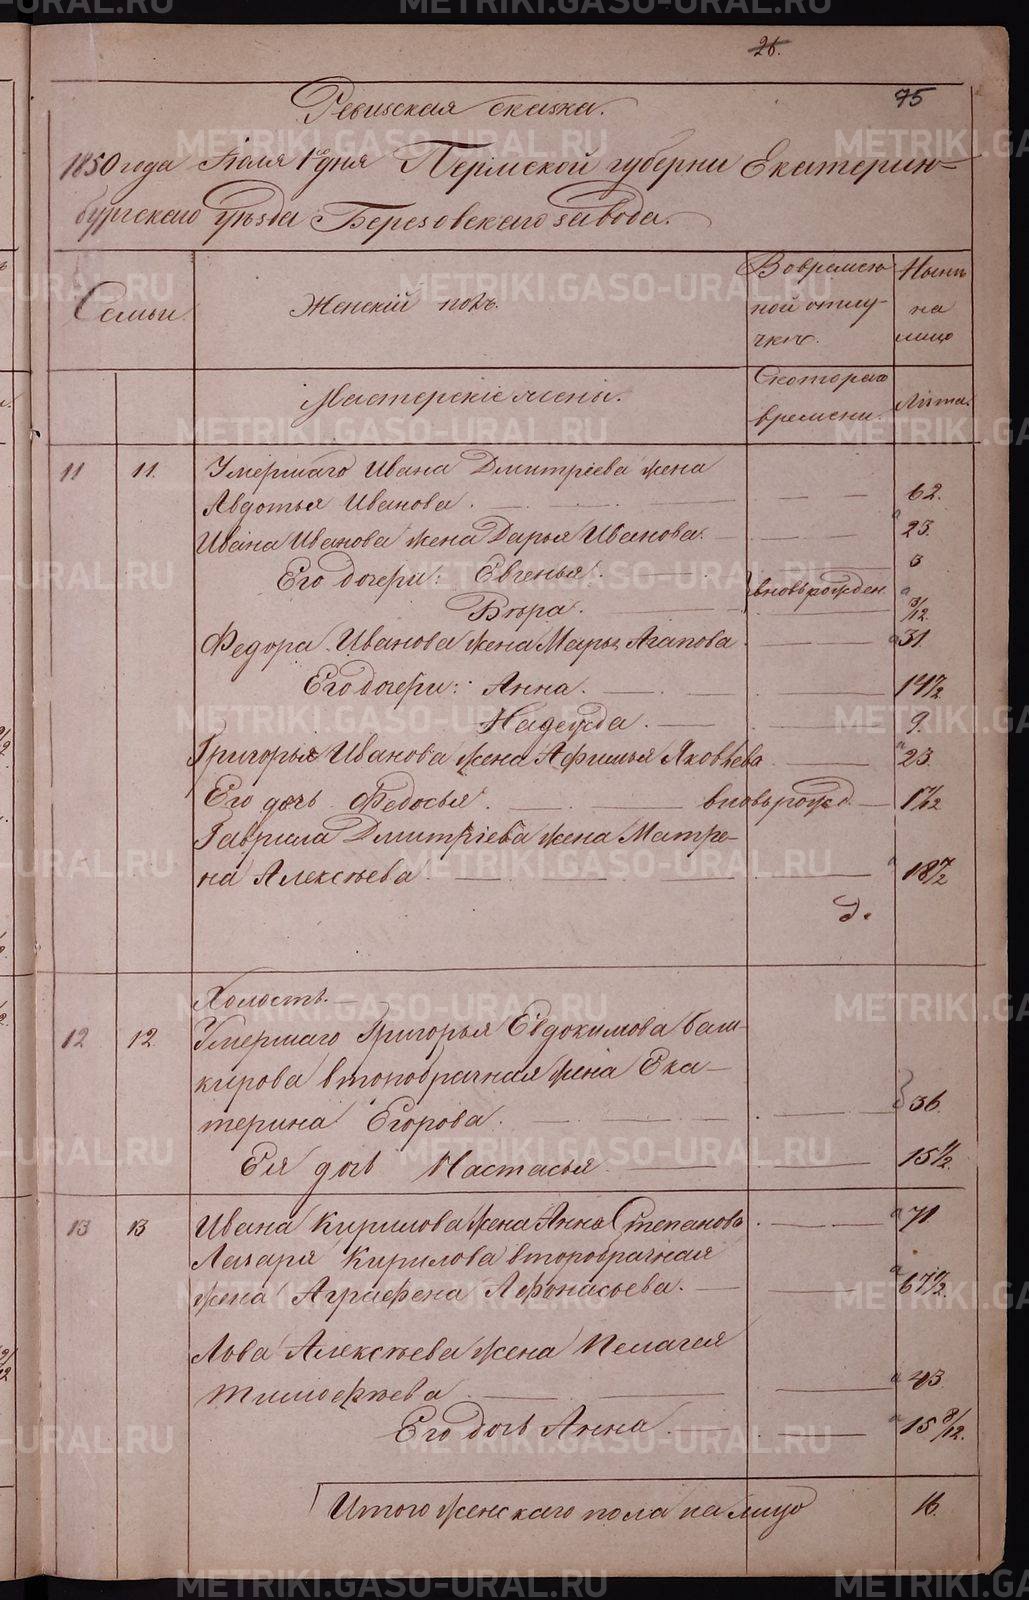 26.
75
Ревизская сказка.
1850 года Іюля 1го дня Пермской губерніи Екатерин-
бургскаго уѣзда Березовскаго завода.
Семьи. Женскій полъ. Во времен-
ной отлу-
чкѣ. Нынѣ
на
лицо
Мастерскіе жены. Съ котораго
времени. Лѣта.
11 11. Умершаго Ивана Дмитріева жена
Авдотья Иванова. 62.
Ивана Иванова жена Дарья Иванова. 23.
Его дочери: Евгенья. 3
Вѣра. вновь рожден. 3/12
Федора Иванова жена Марья Агапова. 31.
Его дочери: Анна. 14 1/2
Надежда. 9.
Григорья Иванова жена Афимья Яковлева 23.
Его дочь Федосья. вновь рожд.
Гаврила Дмитріева жена Матре-
на Алексѣева
д.
Холостъ.
12 12 Умершаго Григорья Евдокимова Баш-
кирова второбрачная жена Ека-
терина Егорова. 36
Ея дочь Настасья 15 1/2
13 13 Ивана Кирилова жена Анна Степанова. 71
Лазаря Кирилова второбрачная
жена Аграфена Афонасьева.
Лова Алексѣева жена Пелагея
Тимофѣева 43
Его дочь Анна. 15 8/12.
Итого женскаго пола на лицо 16.
METRIKI.GASO-URAL.RU